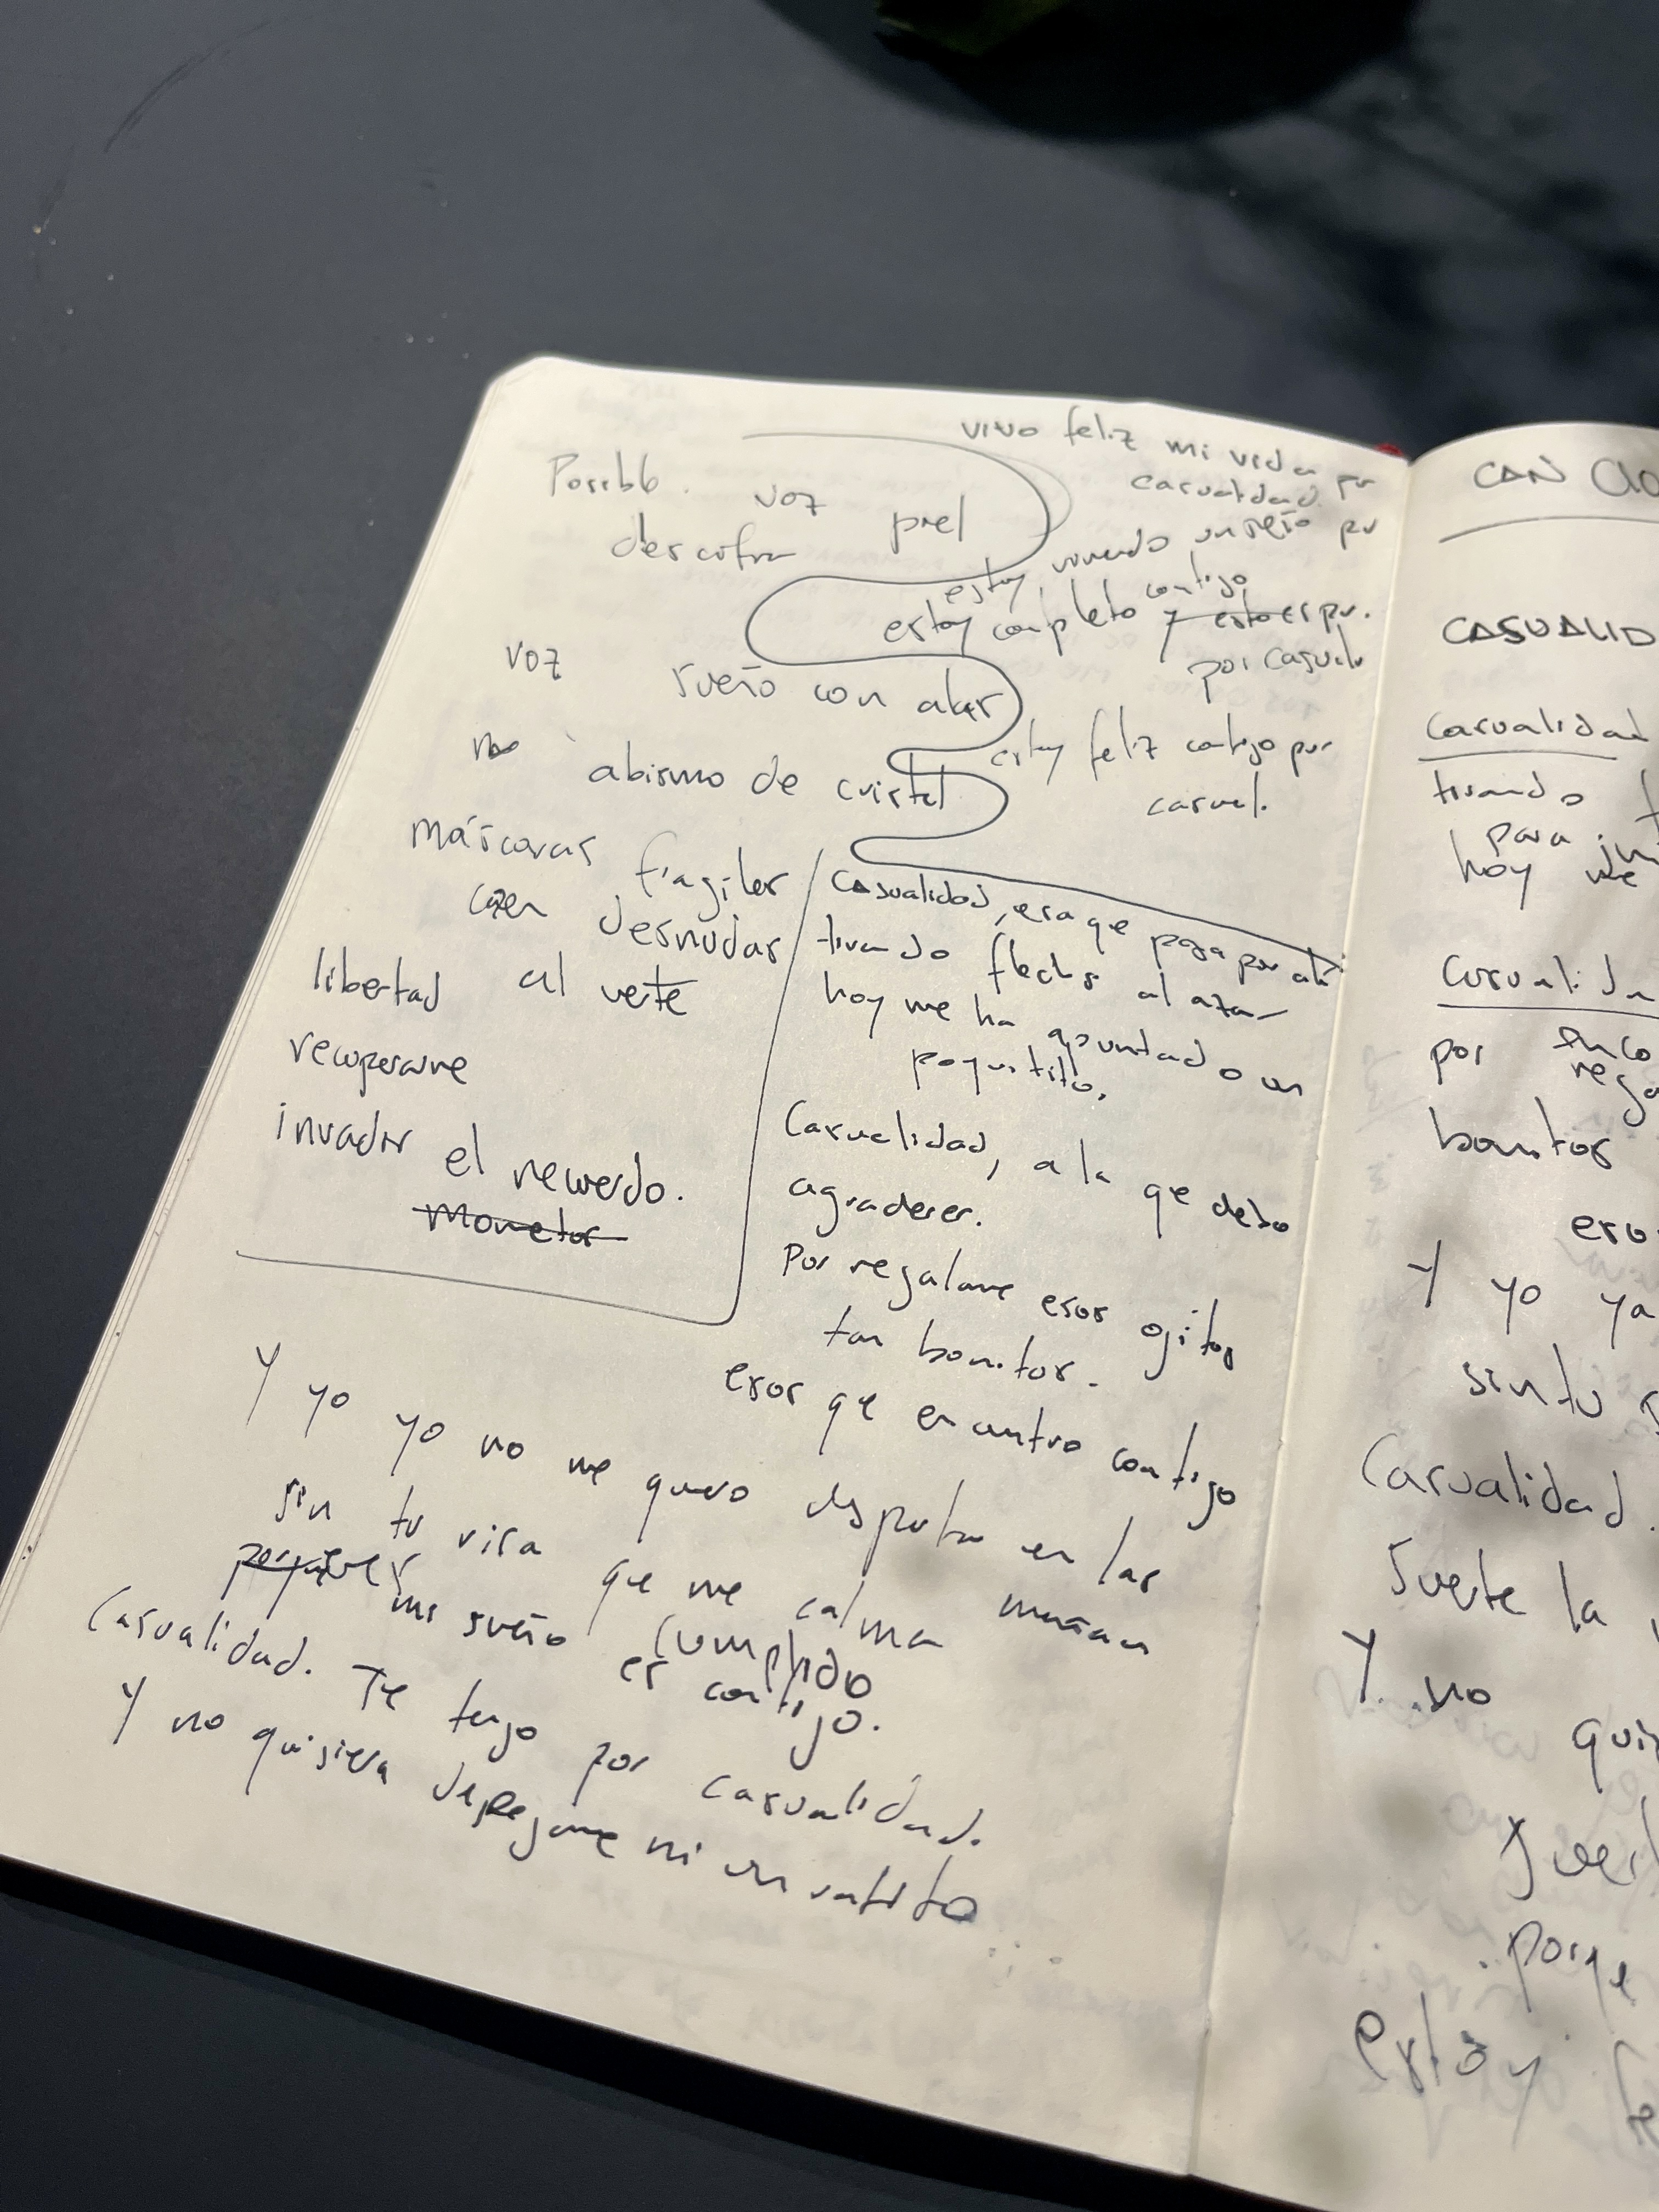 vivo feliz mi vida por
casualidad.
estoy viviendo un sueño por
estoy completo contigo
por casuali
estoy feliz contigo por
casual.
Posible. voz piel
descifra
voz sueño con alas
no abismo de cristal
máscaras frágiles
caen desnudas
libertad al verte
recuperarme
invadir el recuerdo.
Casualidad, esa que pasa por ahí
tirando flechas al azar
hoy me ha apuntado un
poquitito.
Casualidad, a la que debo
agradecer.
Por regalarme esos ojitos
tan bonitos.
esos que encuentro contigo
Y yo yo no me quiero despertar en las mañanas
sin tu risa que me calma
mi sueño cumplido
es contigo.
Casualidad. Te tengo por casualidad.
Y no quisiera despegarme ni un ratito...
CAN
CASUALID
Casualidad
tirando
para
hoy me
Casualida
por
bonitos
Y yo ya
sin tu
Casualidad.
Suerte la
Y no qui
porque
estoy fe